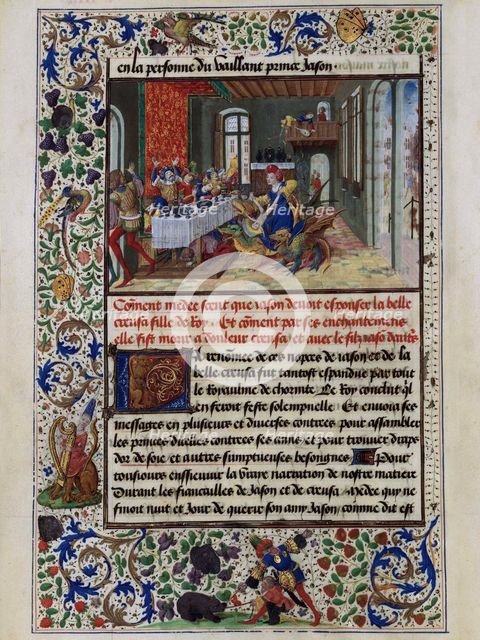 en la personne du vaillant prince Jason
Comment medee sceut que Jason devoit espouser la belle
creusa fille de Roy. Et comment par ses enchantemens
elle fist morir a douleur creusa et avec le filz
A renommee de ces nopces de iason et de la
belle creusa fut tantost espandue par tout
le Royaulme de Le Roy conclut qil
en feroit feste solempnelle Et envoia ses
messages en plusieurs et diverses contrees pour assambler
les princes d'icelles contrees et pour trouver draps
dor de soie et autres sumptueuses besongnes Pour
tousiours ensievuir la vraye narration de nostre matiere
Durant les fiancailles de Jason et de creusa medee quy ne
finoit nuit et Jour de querir son amy Jason comme dit est
heritage
images